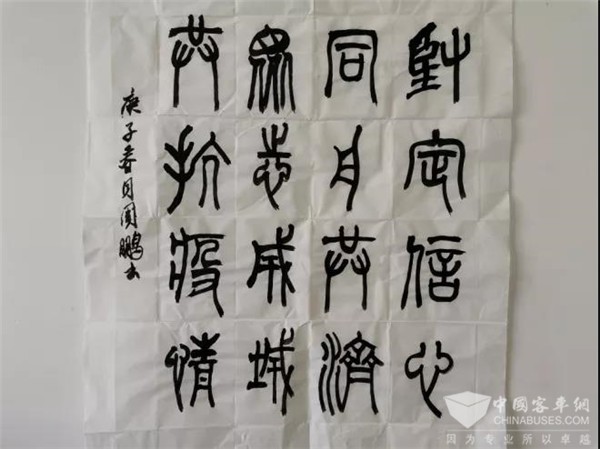 堅定信心
同舟共濟
眾志成城
共抗疫情
庚子春日國鵬书
中國客車網
CHINABUSES.COM
因为专业所以卓越